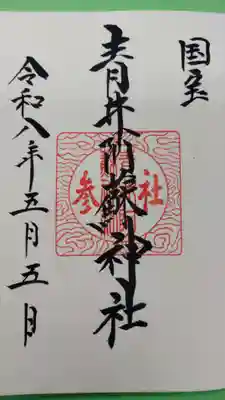 国宝
青井阿蘇神社
参社
令和八年五月五日